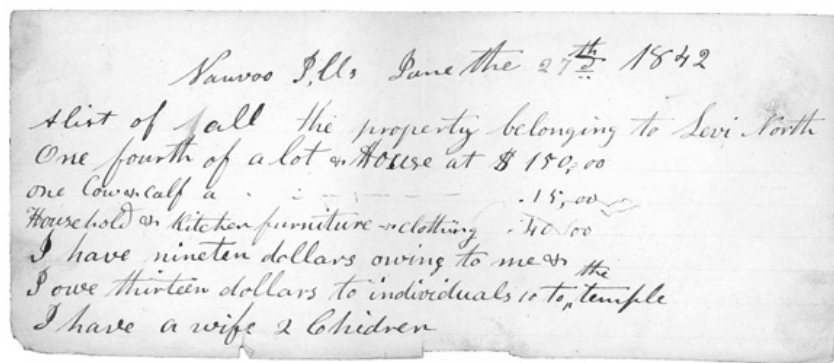 Nauvoo Ills June the 27th 1842
A list of all the property belonging to Levi North
One fourth of a lot & House at $ 150,00
one Cow & calf a . . . 15,00
Household & Kitchen furniture & clothing . 40 00
I have nineten dollars owing to me &
I owe thirteen dollars to individuals 10 to the temple
I have a wife 2 Chidren